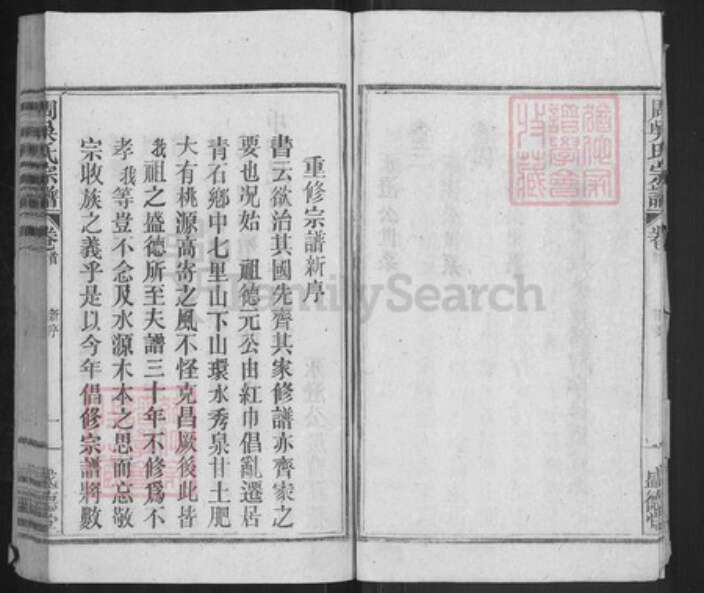 重修宗譜新序
書云欲治其國先齊其家修譜亦齊家之
要也况始　祖德元公由紅巾倡亂遷居
青石鄉中七里山下山環水秀泉甘土肥
大有桃源高寄之風不怪克昌厥後此皆
我祖之盛德所至夫譜三十年不修爲不
孝我等豈不念及水源木本之思而忘敬
宗收族之義乎是以今年倡修宗譜將數
周吳氏宗譜
卷首
新序
一
盛德堂
周吳氏宗譜
卷首
盛德堂
FamilySearch